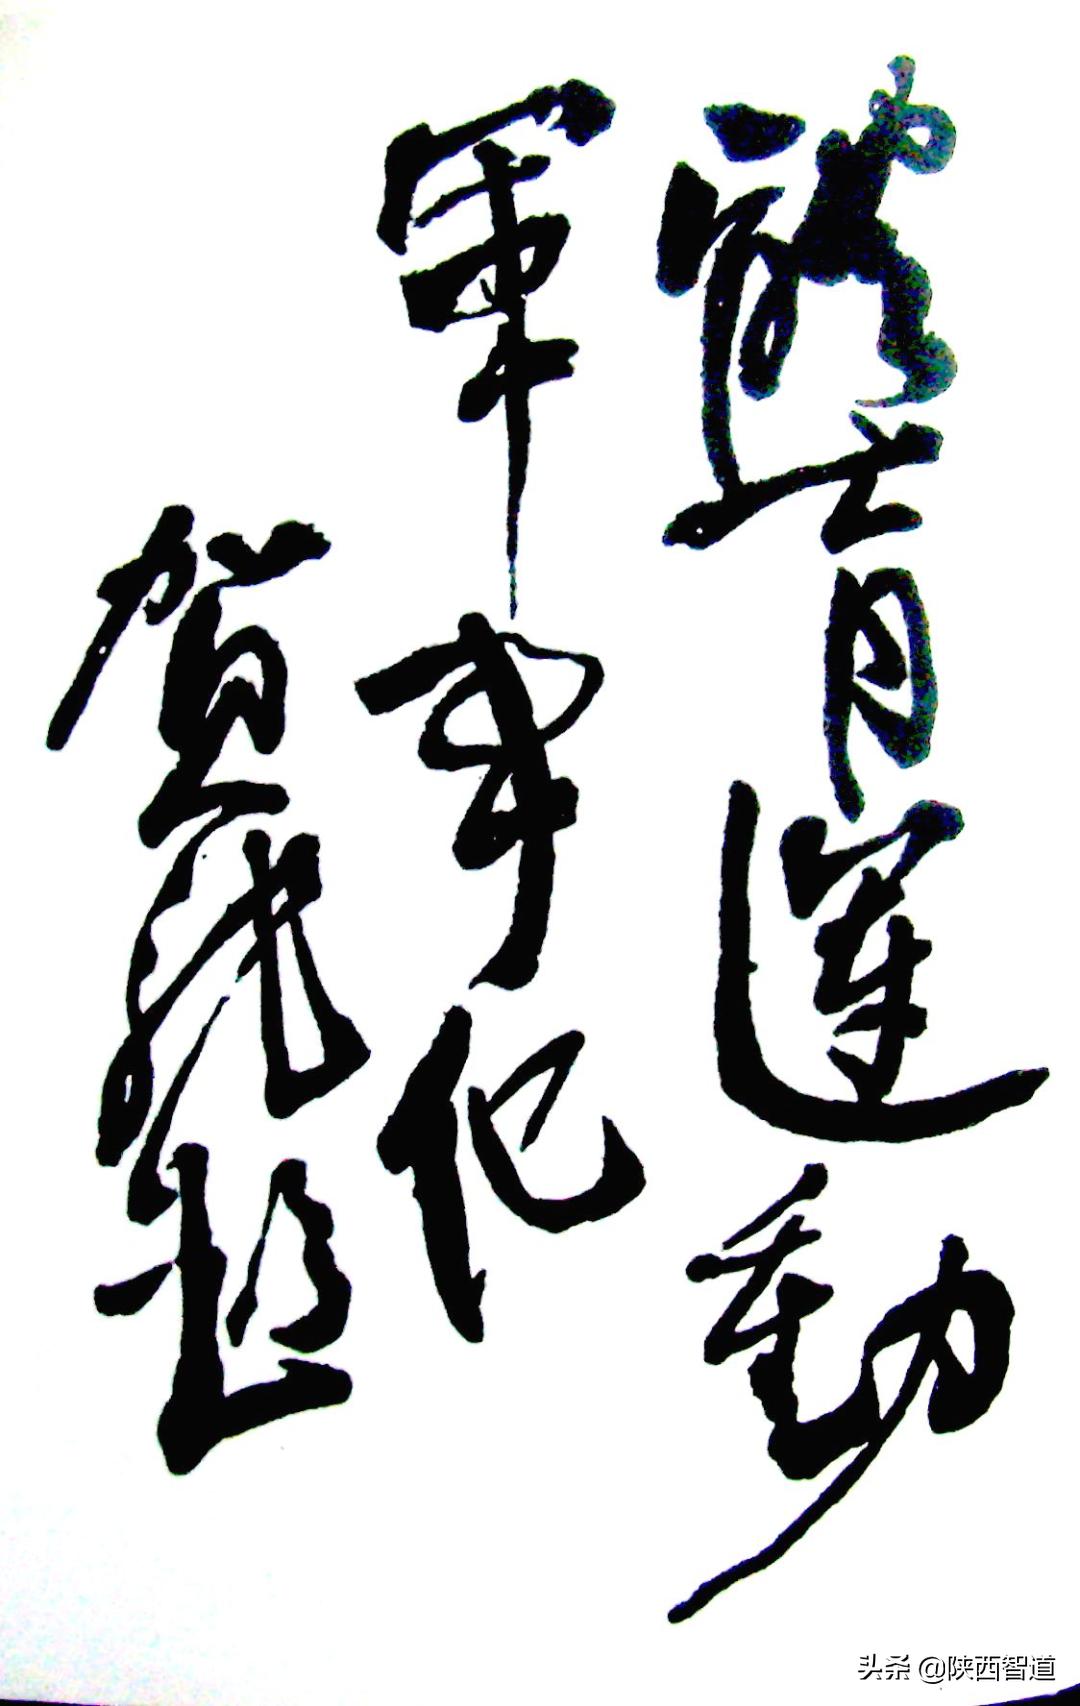 體育運動
軍事化
賀龍題
头条 @陕西智道